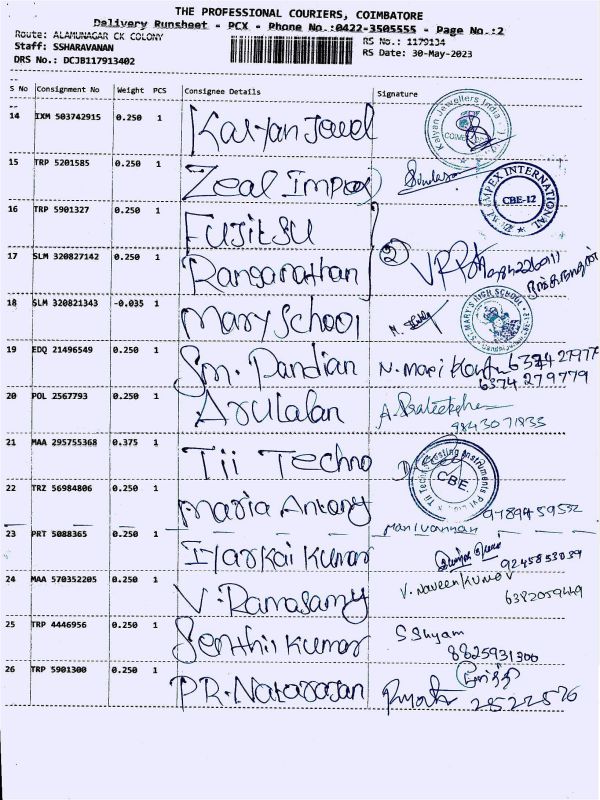 THE PROFESSIONAL COURIERS, COIMBATORE
Delivery Runsheet - PCX - Phone No.:0422-3505555 - Page No.:2
Route: ALAMUNAGAR CK COLONY
Staff: SSHARAVANAN
DRS No.: DCJB117913402
RS No.: 1179134
RS Date: 30-May-2023
S No Consignment No Weight PCS Consignee Details Signature
14 IXM 503742915 0.250 1 Kalyan Jewel Kalyan Jewellers India COIMBATORE
15 TRP 5201585 0.250 1 Zeal Impex IMPEX INTERNATIONAL CBE-12
16 TRP 5901327 0.250 1 Fujitsu
17 SLM 320827142 0.250 1 Ranganathan 2
18 SLM 320821343 -0.035 1 Mary School ST. MARY'S HIGH SCHOOL
19 EDQ 21496549 0.250 1 Sm. Pandian N. Mari
6374279779
20 POL 2567793 0.250 1 Arulalan
9843071833
21 MAA 295755368 0.375 1 Tii Techno Tii Techno Testing Instruments CBE
22 TRZ 56984806 0.250 1 Maria Antony Manivannan 9789459552
23 PRT 5088365 0.250 1 Ilarkai Kumar 9245853039
24 MAA 570352205 0.250 1 V. Ramasamy V. Naveen Kumar
6382059449
25 TRP 4446956 0.250 1 Senthil Kumar S Shyam
8825931300
26 TRP 5901300 0.250 1 P.R. Natarajan 2522576